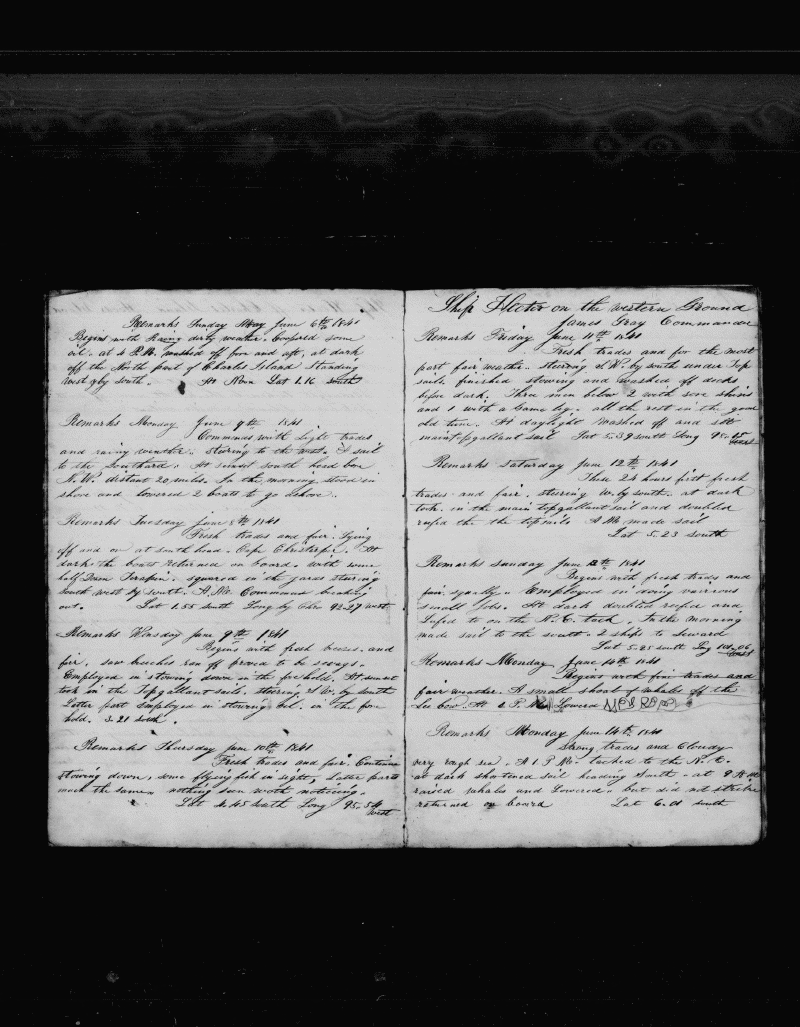 Remarks Sunday June 6th 1841
Begins with dirty weather. Coopered some
oil. at 4 P.M. washed off fore and aft, at dark
off the North part of Charles Island Standing
West by south. At Noon Lat 1.16 south
Remarks Monday June 7th 1841
Commences with light trades
and rainy weather. Steering to the west. 1 sail
to the Southard. At sunset south head bore
N.W. distant 20 miles. In the morning stood in
shore and lowered 2 boats to go ashore.
Remarks Tuesday June 8th 1841
Fresh trades and fair. Lying
off and on at south head. At
dark the boats returned on board with some
half Dozen Terapin. squared in the yards steering
south west by south. A.M. Commences breaking
out. Lat 1.55 south Long by Chro 92-27 west
Remarks Winsday June 9th 1841
Begins with fresh breeses and
fair. saw breeches ran off proved to be
Employed in stowing down in the forehold. At sunset
took in the Topgallant sails. steering S W. by south
Latter part Employed in stowing oil in the fore
hold. 3.21 south.
Remarks Thursday June 10th 1841
Fresh trades and fair. Continue
stowing down, some flying fish in sight, Latter parts
much the same. nothing seen worth noticeing.
Lat 4.45 South Long 95.54
west
Ship Hector on the western Ground
James Gray Commander
Remarks Friday June 11th 1841
Fresh trades and for the most
part fair weather. steering S.W. by south under Top
sails. finished stowing and washed off decks
before dark. Three men below 2 with sore shins
and 1 with a Game leg. all the rest in the good
old tune. At daylight washed off and set
main topgallant sail Lat 5.39 south Long
Remarks Saturday June 12th 1841
These 24 hours first fresh
trades and fair. steering W. by south. at dark
took in the main topgallant sail and doubled
reefd the the topsails A M. made sail
Lat 5.23 south
Remarks sunday June 1841
Begins with fresh trades and
fair. Employed in doing various
small jobs. At dark doubled reefed and
Luffed to on the N.E. tack. In the morning
made sail to the south. 2 ships to Leward
Lat 5.25 south Long 101-06
Remarks Monday June 14th 1841
Begins with fine trades and
fair weather. A small shoal of whales off the
Lee bow. At 2 P. M. Lowered
Remarks Monday June 14th 1841
Strong trades and Cloudy
very rough sea. At 1 P M. tacked to the N. E.
at dark shortened sail heading South. at 9 A M
raised whales and Lowered. but did not strike
returned on board Lat 6.01 south